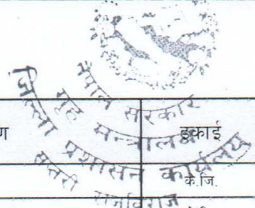 नेपाल सरकार
गृह मन्त्रालय
जिल्ला प्रशासन कार्यालय
सप्तरी राजविराज
ण
इकाई
के.जि.